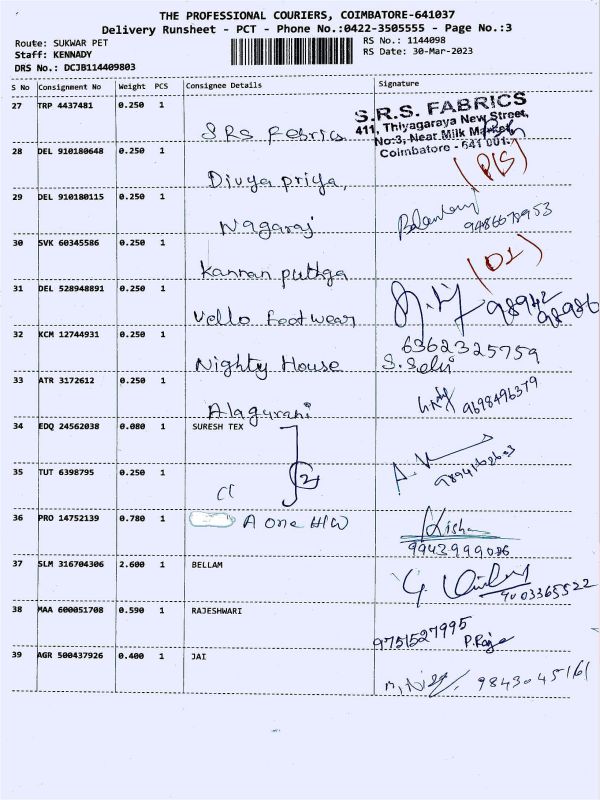 THE PROFESSIONAL COURIERS, COIMBATORE-641037
Delivery Runsheet - PCT - Phone No.:0422-3505555 - Page No.:3
Route: SUKWAR PET
RS No.: 1144098
Staff: KENNADY
RS Date: 30-Mar-2023
DRS No.: DCJB114409803
S No Consignment No Weight PCS Consignee Details Signature
27 TRP 4437481 0.250 1 SRS Febrics
S.R.S. FABRICS
411, Thiyagaraya New Street,
No:3, Near Milk Market,
Coimbatore - 641 001.
28 DEL 910180648 0.250 1 Divya priya,
(P/S)
29 DEL 910180115 0.250 1 Nagaraj
30 SVK 60345586 0.250 1 Kannan puthga
(D1)
31 DEL 528948891 0.250 1 Vello Footwear
98942
32 KCM 12744931 0.250 1 Nighty House
6362325759
S. Selvi
33 ATR 3172612 0.250 1 Alagurani
9698496379
34 EDQ 24562038 0.080 1 SURESH TEX
35 TUT 6398795 0.250 1 cl
2
36 PRO 14752139 0.780 1 A one H/W
37 SLM 316704306 2.600 1 BELLAM
38 MAA 600051708 0.590 1 RAJESHWARI
9751527995
P. Raja
39 AGR 500437926 0.400 1 JAI
9843045161